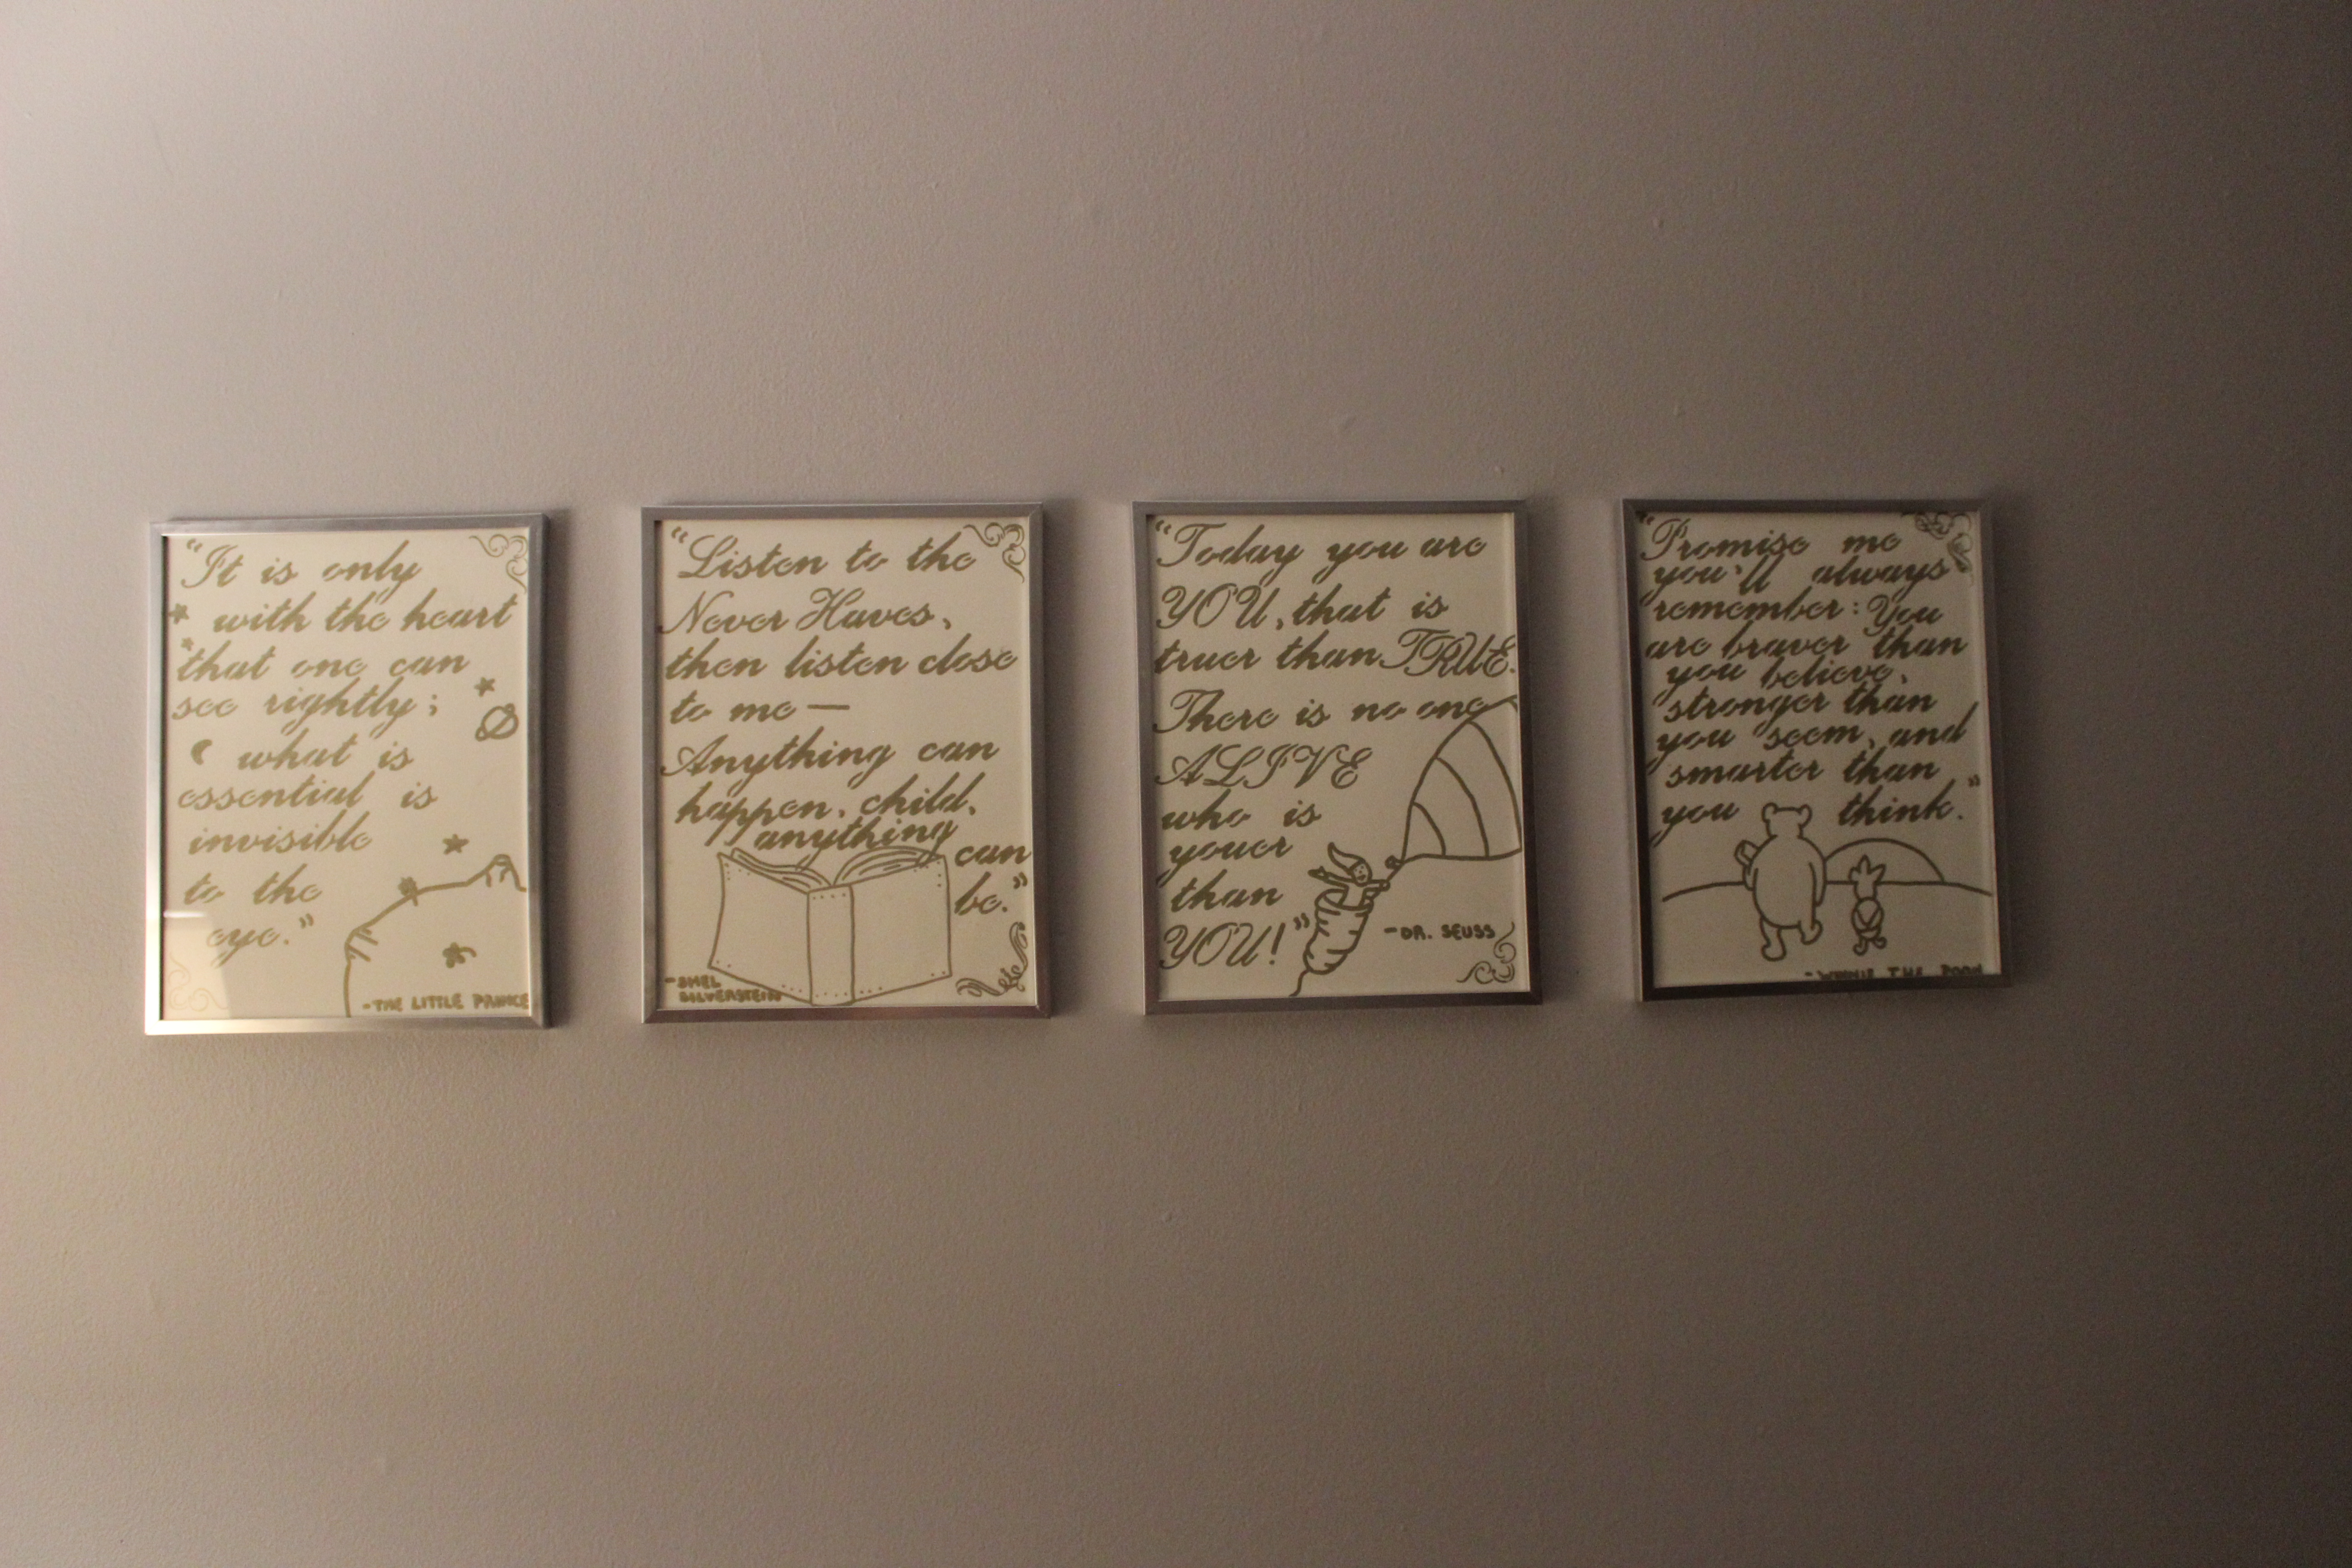 “It is only
with the heart
that one can
see rightly;
what is
essential is
invisible
to the
eye.”
-THE LITTLE PRINCE
“Listen to the
Never Haves,
then listen close
to me—
Anything can
happen, child,
anything
can
be.”
-SHEL
SILVERSTEIN
“Today you are
YOU, that is
truer than TRUE.
There is no one
ALIVE
who is
youer
than
YOU!”
-DR. SEUSS
“Promise me
you'll always
remember: You
are braver than
you believe,
stronger than
you seem, and
smarter than
you think.”
-WINNIE THE POOH